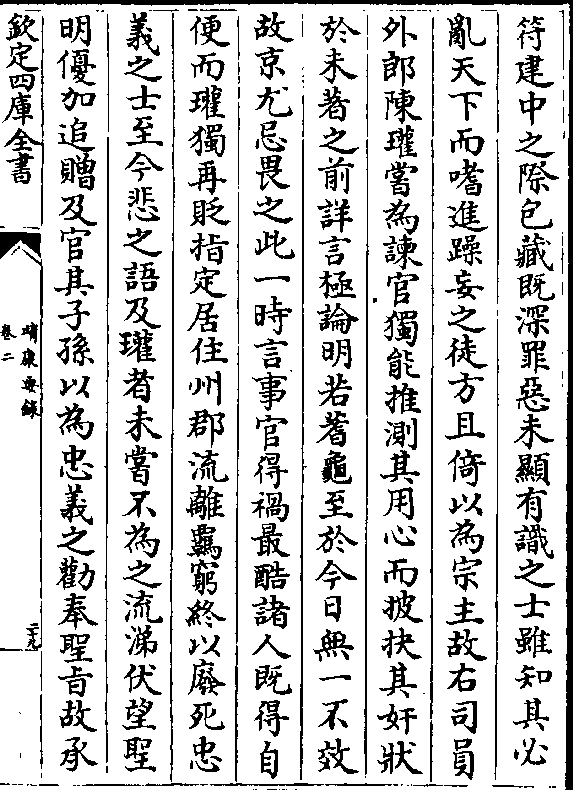 符建中之際包藏既深罪惡未顯有識之士雖知其必
亂天下而嗜進躁妄之徒方且倚以為宗主故右司員
外郎陳瓘嘗為諫官獨能推測其用心而披抉其奸狀
於未著之前詳言極論明若蓍龜至於今日無一不效
故京尤忌畏之此一時言事官得禍最酷諸人既得自
便而瓘獨再貶指定居住州郡流離羈窮終以廢死忠
義之士至今悲之語及瓘者未嘗不為之流涕伏望聖
明優加追贈及官其子孫以為忠義之勸奉聖旨故承
欽定四庫全書
靖康要錄
卷二
二十九